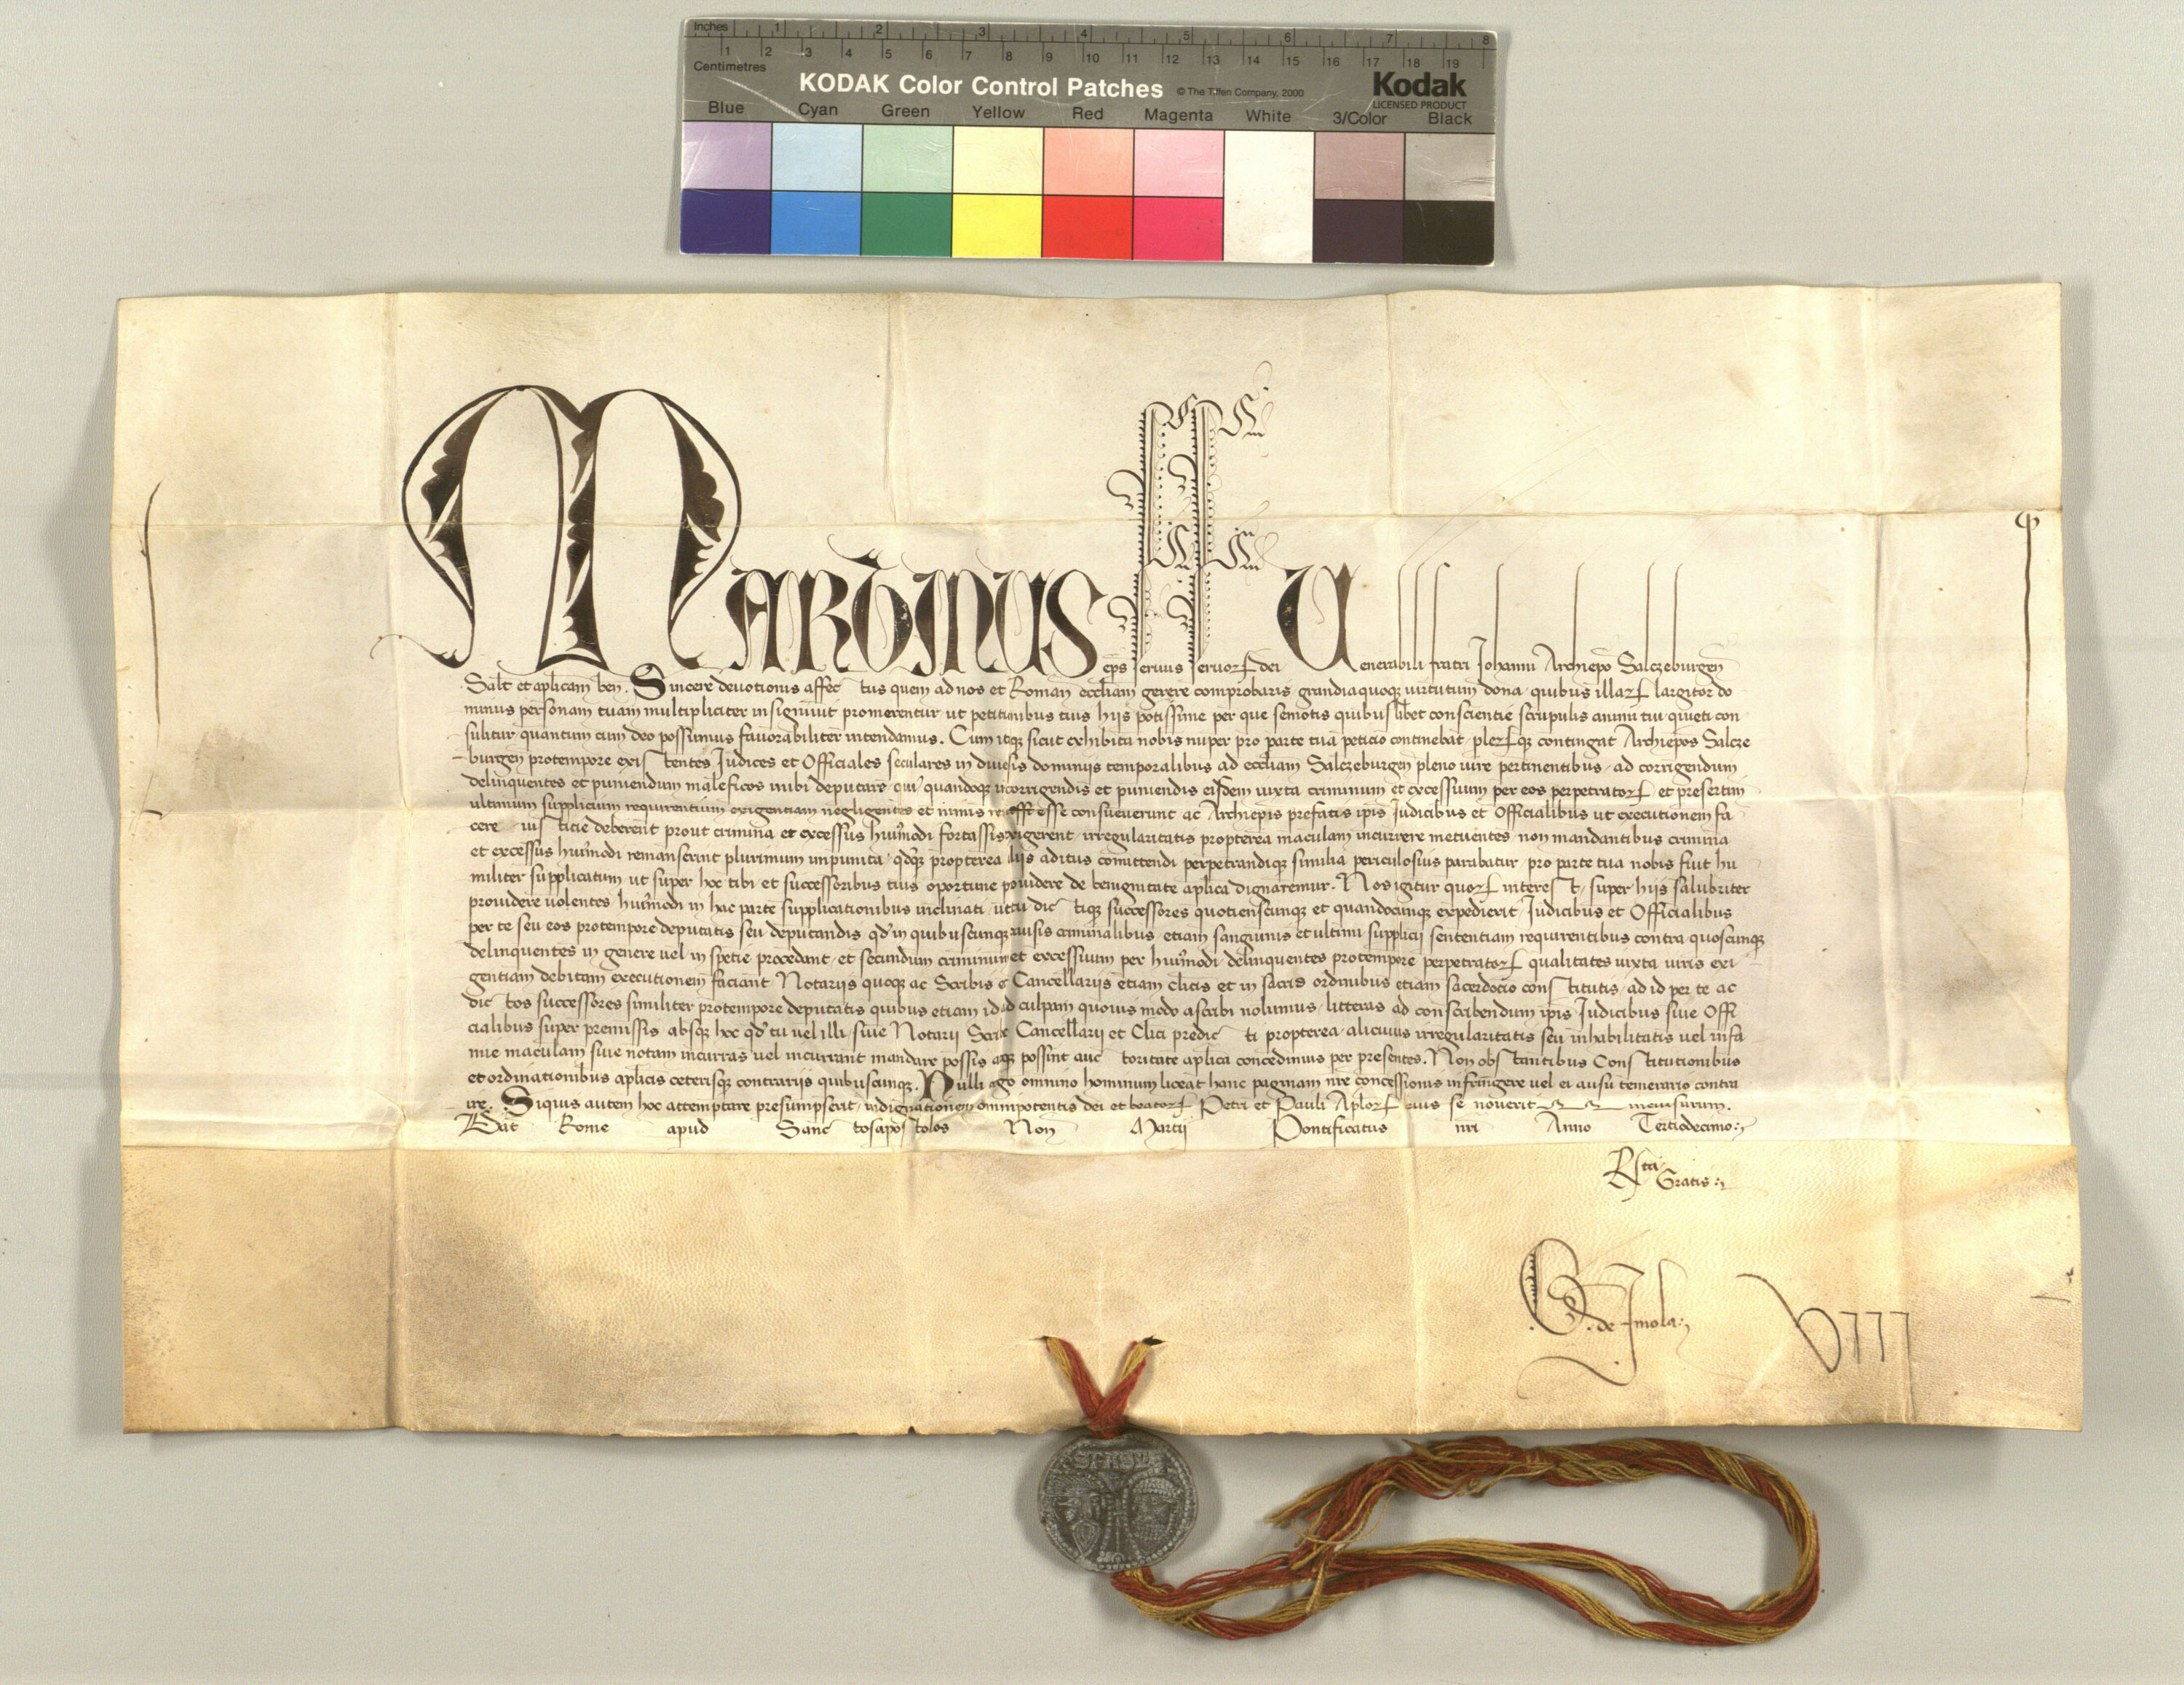 Inches 1 2 3 4 5 6 7 8
1 2 3 4 5 6 7 8 9 10 11 12 13 14 15 16 17 18 19
Centimetres
KODAK Color Control Patches © The Tiffen Company, 2000 Kodak
LICENSED PRODUCT
Blue Cyan Green Yellow Red Magenta White 3/Color Black
MARTINUS eps seruus seruoꝝ dei Uenerabili fratri Johanni Archiepo Salczeburgen
Salt et aplicam ben. Sincere deuotionis affectus quem ad nos et Roman eccliam gerere comprobaris grandiaquoqꝫ uirtutum dona quibus illaꝝ largitor do
minus personam tuam multipliciter insigniuit promerentur ut petitionibus tuis hijs potissime per que semotis quibuslibet conscientie scrupulis animi tui quieti con
sulitur quantum cum deo possumus fauorabiliter intendamus. Cum itaqꝫ sicut exhibita nobis nuper pro parte tua peticio continebat pleꝝqꝫ contingat Archiepos Salcze
burgen protempore existentes Judices et Officiales seculares in diuersis dominijs temporalibus ad eccliam Salczeburgen pleno iure pertinentibus ad corrigendum
delinquentes et puniendum maleficos inibi deputare qui quandoqꝫ in corrigendis et puniendis eisdem iuxta criminum et excessuum per eos perpetratoꝝ et presertim
ultimum supplicium requirentium exigentiam negligentes et nimis esse consueuerunt ac Archiepis prefatis ipis Judicibus et Officialibus ut executionem fa
cere iusticie deberent prout crimina et excessus huiusmodi fortassis exigerent irregularitatis propterea maculam incurrere metuentes non mandantibus crimina
et excessus huiusmodi remanserint plurimum impunita qdqꝫ propterea alijs aditus comittendi perpetrandiqꝫ similia periculosius parabatur pro parte tua nobis fuit hu
militer supplicatum ut super hoc tibi et successoribus tuis oportune prouidere de benignitate aplica dignaremur. Nos igitur quoꝝ interest super hijs salubriter
prouidere uolentes huiusmodi in hac parte supplicationibus inclinati ut tu dictiqꝫ successores quotienscunqꝫ et quandocunqꝫ expedierit Judicibus et Officialibus
per te seu eos protempore deputatis seu deputandis qd in quibuscunqꝫ causis criminalibus etiam sanguinis et ultimi supplicij sententiam requirentibus contra quoscunqꝫ
delinquentes in genere uel in spetie procedant et secundum criminum et excessuum per huiusmodi delinquentes protempore perpetratoꝝ qualitates iuxta iuris exi
gentiam debitam executionem faciant Notarijs quoqꝫ ac Scribis et Cancellarijs etiam clicis et in sacris ordinibus etiam sacerdocio constitutis ad id per te ac
dictos successores similiter protempore deputatis quibus etiam id ad culpam quouis modo ascribi nolumus litteras ad conscribendum ipis Judicibus siue Offi
cialibus super premissis absqꝫ hoc qd tu uel illi siue Notarij Scribe Cancellarij et Clici predicti propterea alicuius irregularitatis seu inhabilitatis uel infa
mie maculam siue notam incurras uel incurrant mandare possis atqꝫ possint auctoritate aplica concedimus per presentes. Non obstantibus Constitutionibus
et ordinationibus aplicis ceterisqꝫ contrarijs quibuscunqꝫ. Nulli ergo omnino hominum liceat hanc paginam nre concessionis infringere uel ei ausu temerario contra
ire. Siquis autem hoc attemptare presumpserit indignationem omnipotentis dei et beatoꝝ Petri et Pauli Aploꝝ eius se nouerit incursurum.
Dat Rome apud Sanctosapostolos Non Martij Pontificatus nri Anno Tertiodecimo
Rta
Gratis
G. de Imola
VIII